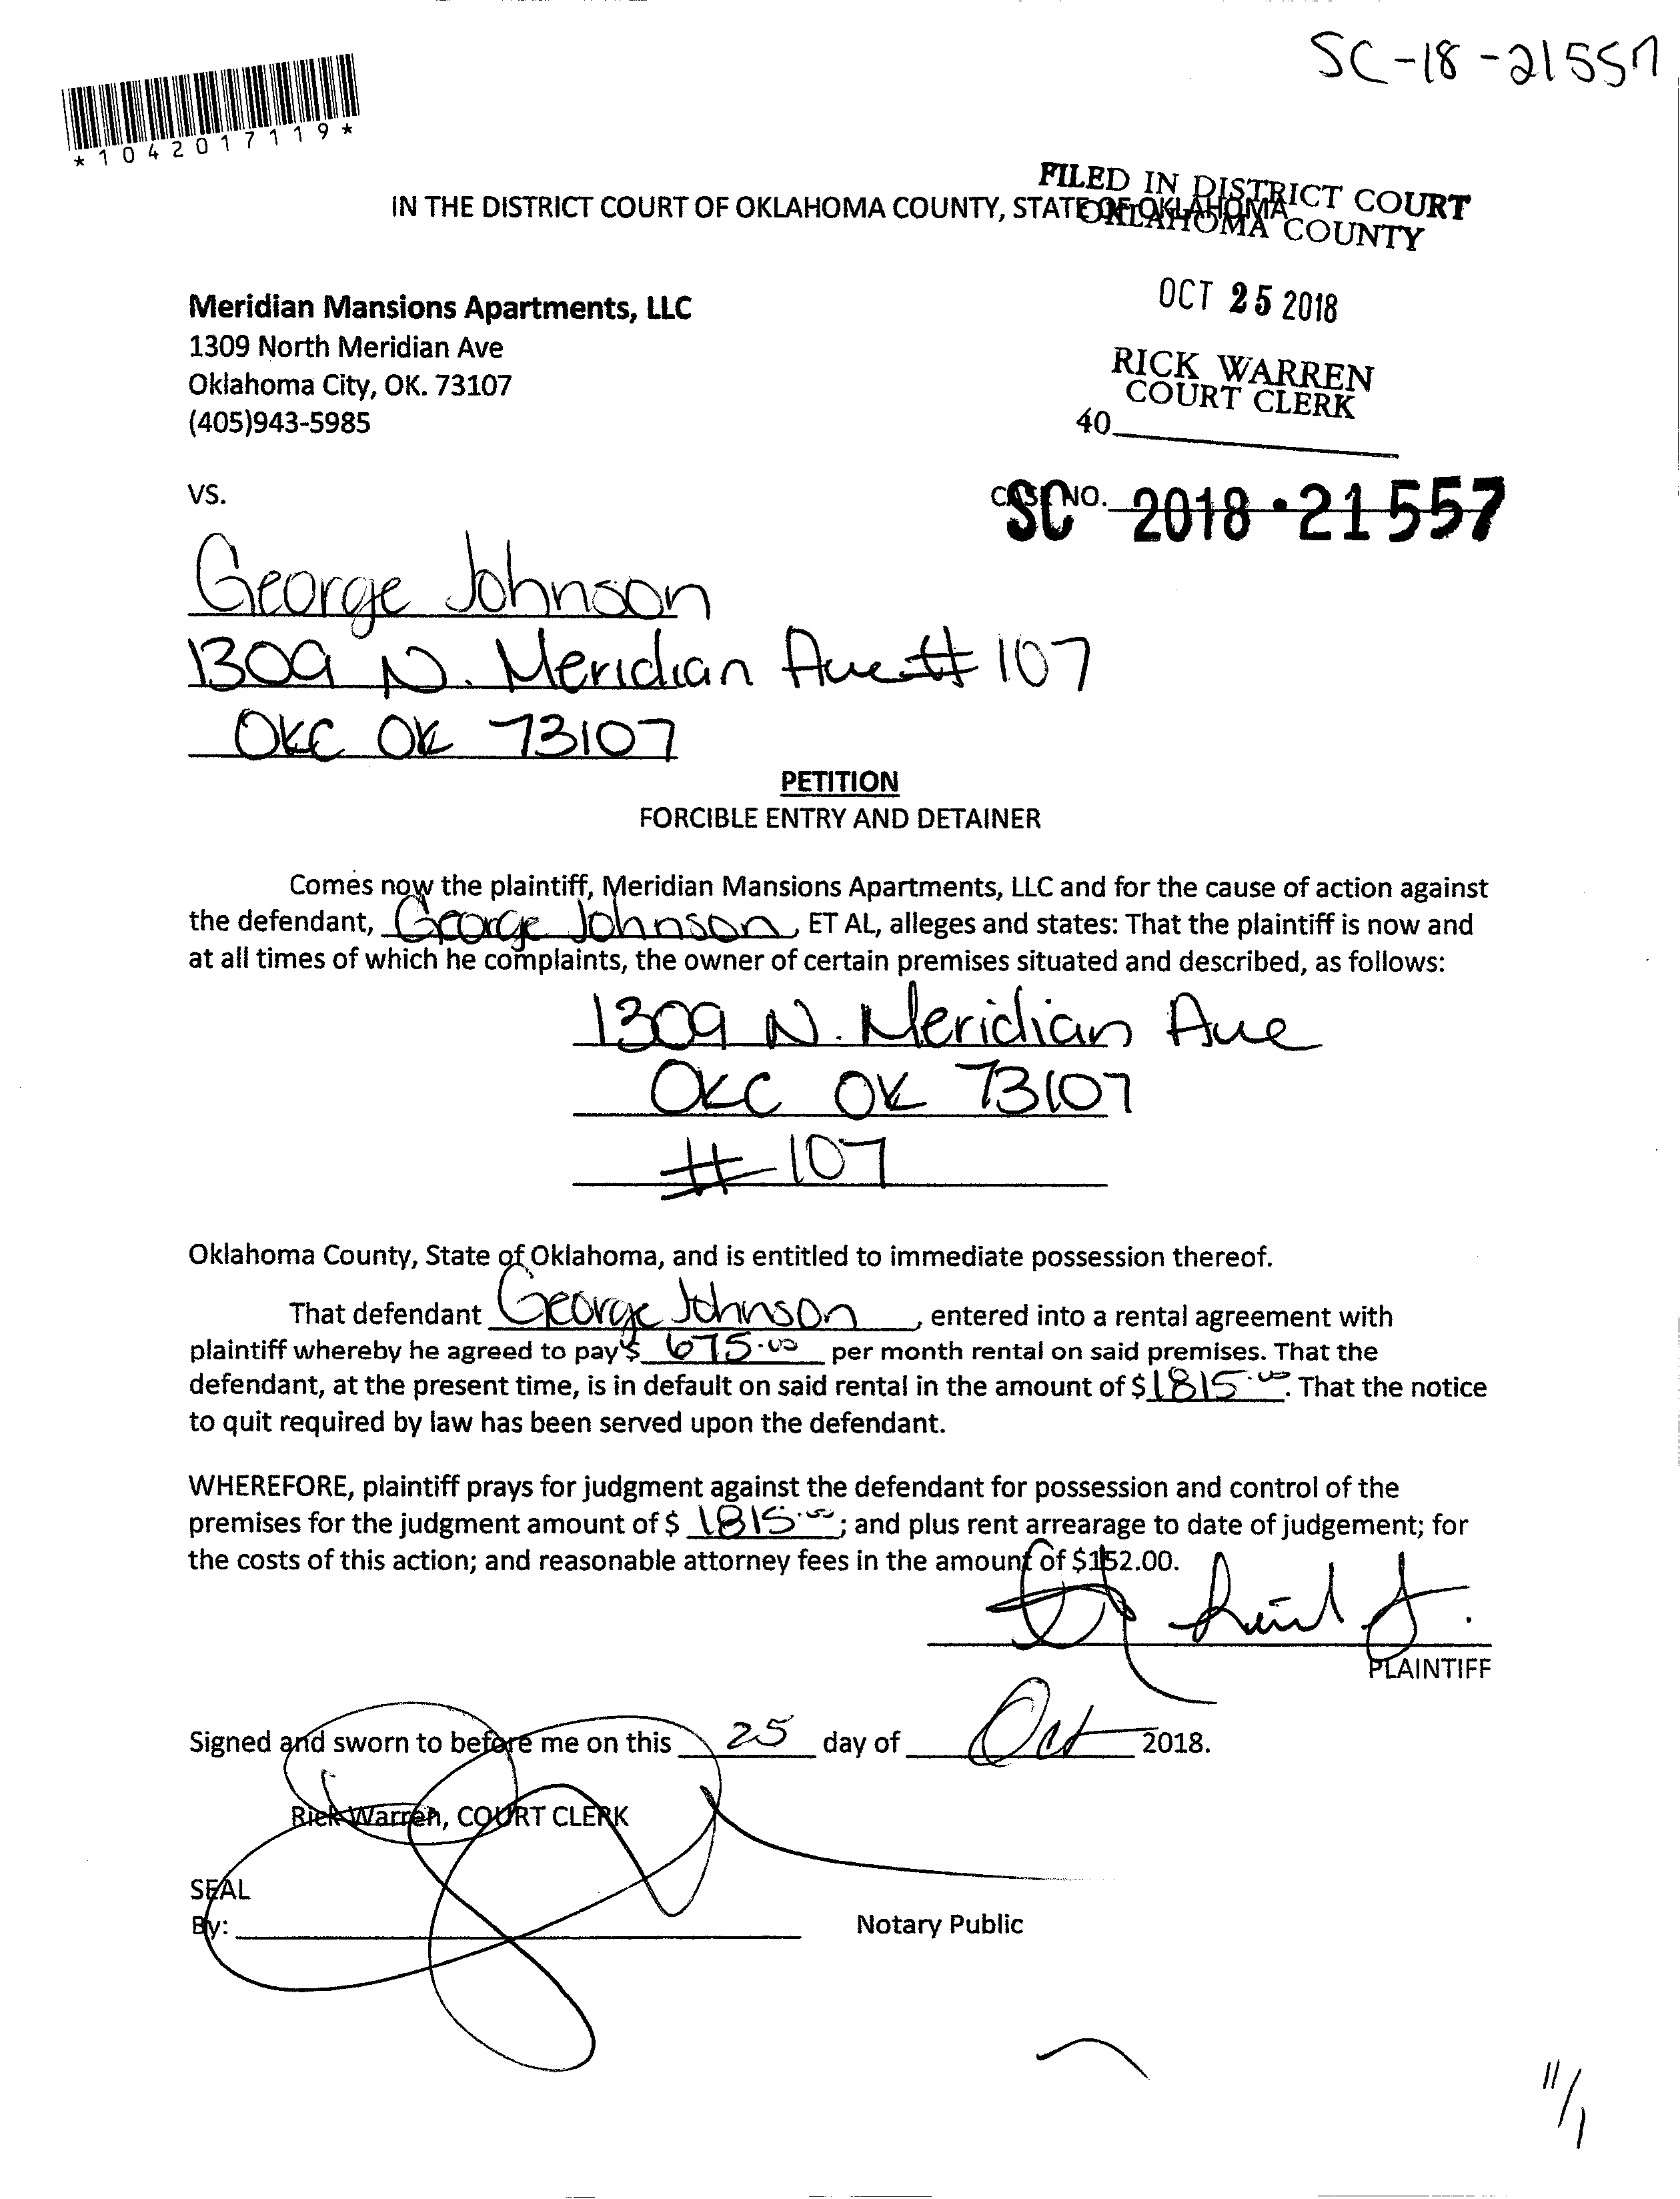 SC-18-21557
*1042017119*
FILED IN DISTRICT COURT
OKLAHOMA COUNTY
IN THE DISTRICT COURT OF OKLAHOMA COUNTY, STATE OF OKLAHOMA
OCT 25 2018
Meridian Mansions Apartments, LLC
1309 North Meridian Ave
Oklahoma City, OK. 73107
(405)943-5985
RICK WARREN
COURT CLERK
40
VS.
CASE NO.
SC 2018-21557
George Johnson
1309 N. Meridian Ave # 107
OKC OK 73107
PETITION
FORCIBLE ENTRY AND DETAINER
Comes now the plaintiff, Meridian Mansions Apartments, LLC and for the cause of action against
the defendant, George Johnson, ET AL, alleges and states: That the plaintiff is now and
at all times of which he complaints, the owner of certain premises situated and described, as follows:
1309 N. Meridian Ave
OKC OK 73107
# 107
Oklahoma County, State of Oklahoma, and is entitled to immediate possession thereof.
That defendant George Johnson, entered into a rental agreement with
plaintiff whereby he agreed to pay $ 675.00 per month rental on said premises. That the
defendant, at the present time, is in default on said rental in the amount of $1815.00. That the notice
to quit required by law has been served upon the defendant.
WHEREFORE, plaintiff prays for judgment against the defendant for possession and control of the
premises for the judgment amount of $ 1815.00; and plus rent arrearage to date of judgement; for
the costs of this action; and reasonable attorney fees in the amount of $152.00.
PLAINTIFF
Signed and sworn to before me on this 25 day of Oct 2018.
Rick Warren, COURT CLERK
SEAL
By: Notary Public
11/1